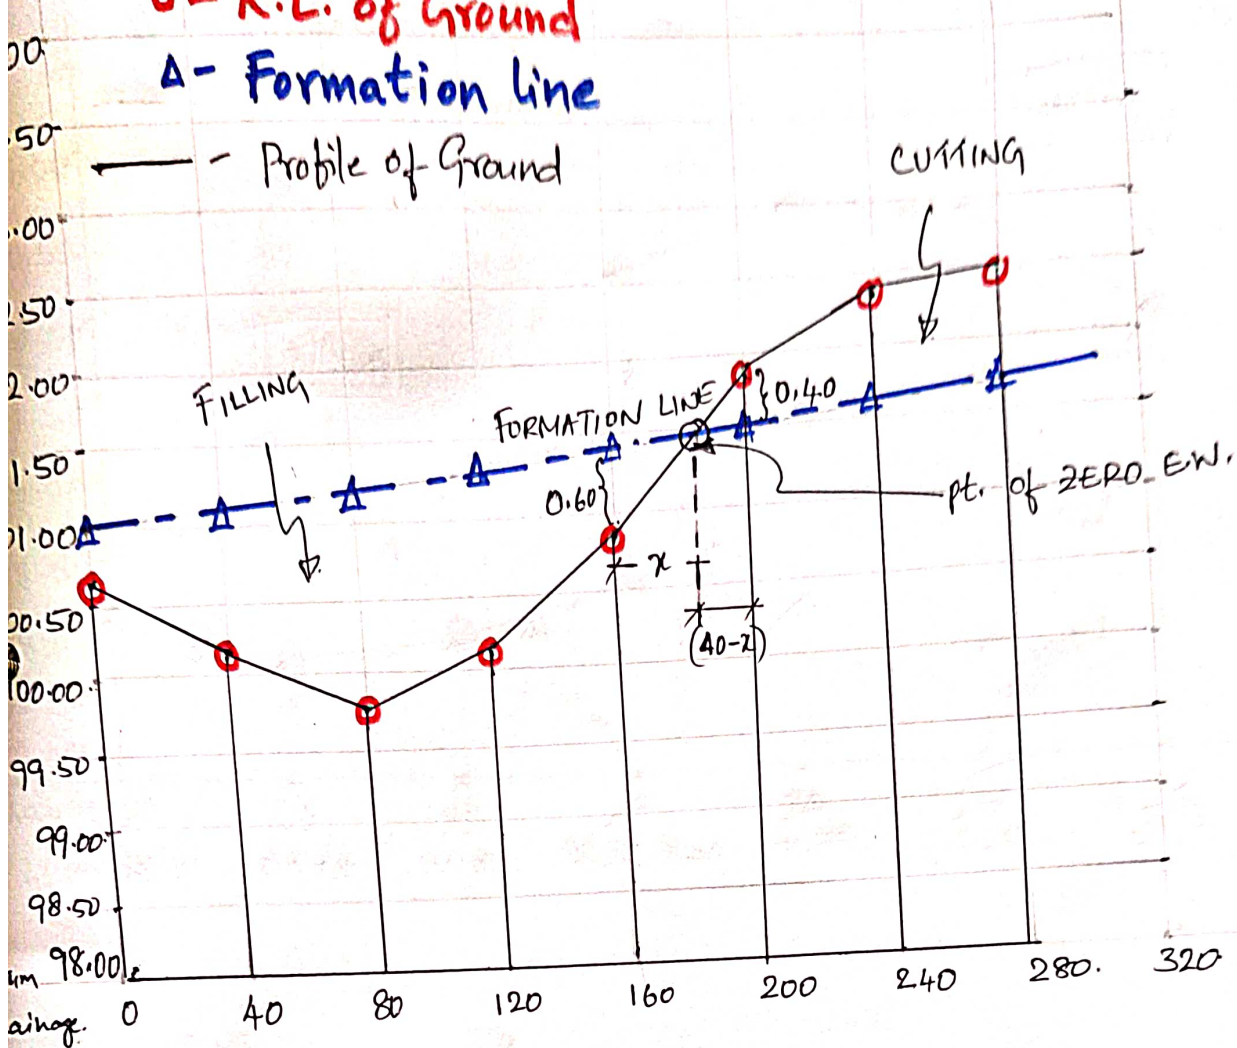 R.L. of Ground
Δ - Formation line
- Profile of Ground
CUTTING
FILLING
FORMATION LINE
0.40
0.60
pt. of ZERO E.W.
x
(40-x)
.50
.00
2.50
2.00
1.50
01.00
00.50
100.00
99.50
99.00
98.50
98.00
0 40 80 120 160 200 240 280. 320